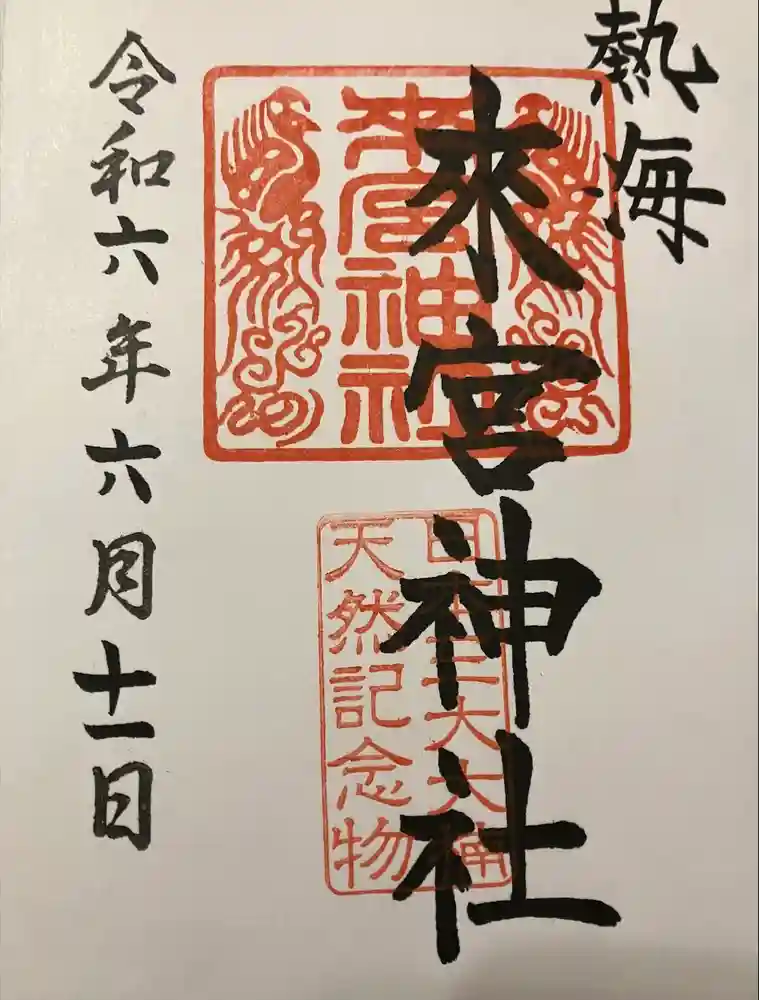 熱海
來宮神社
来宮神社
日本三大大楠
天然記念物
令和六年六月十一日